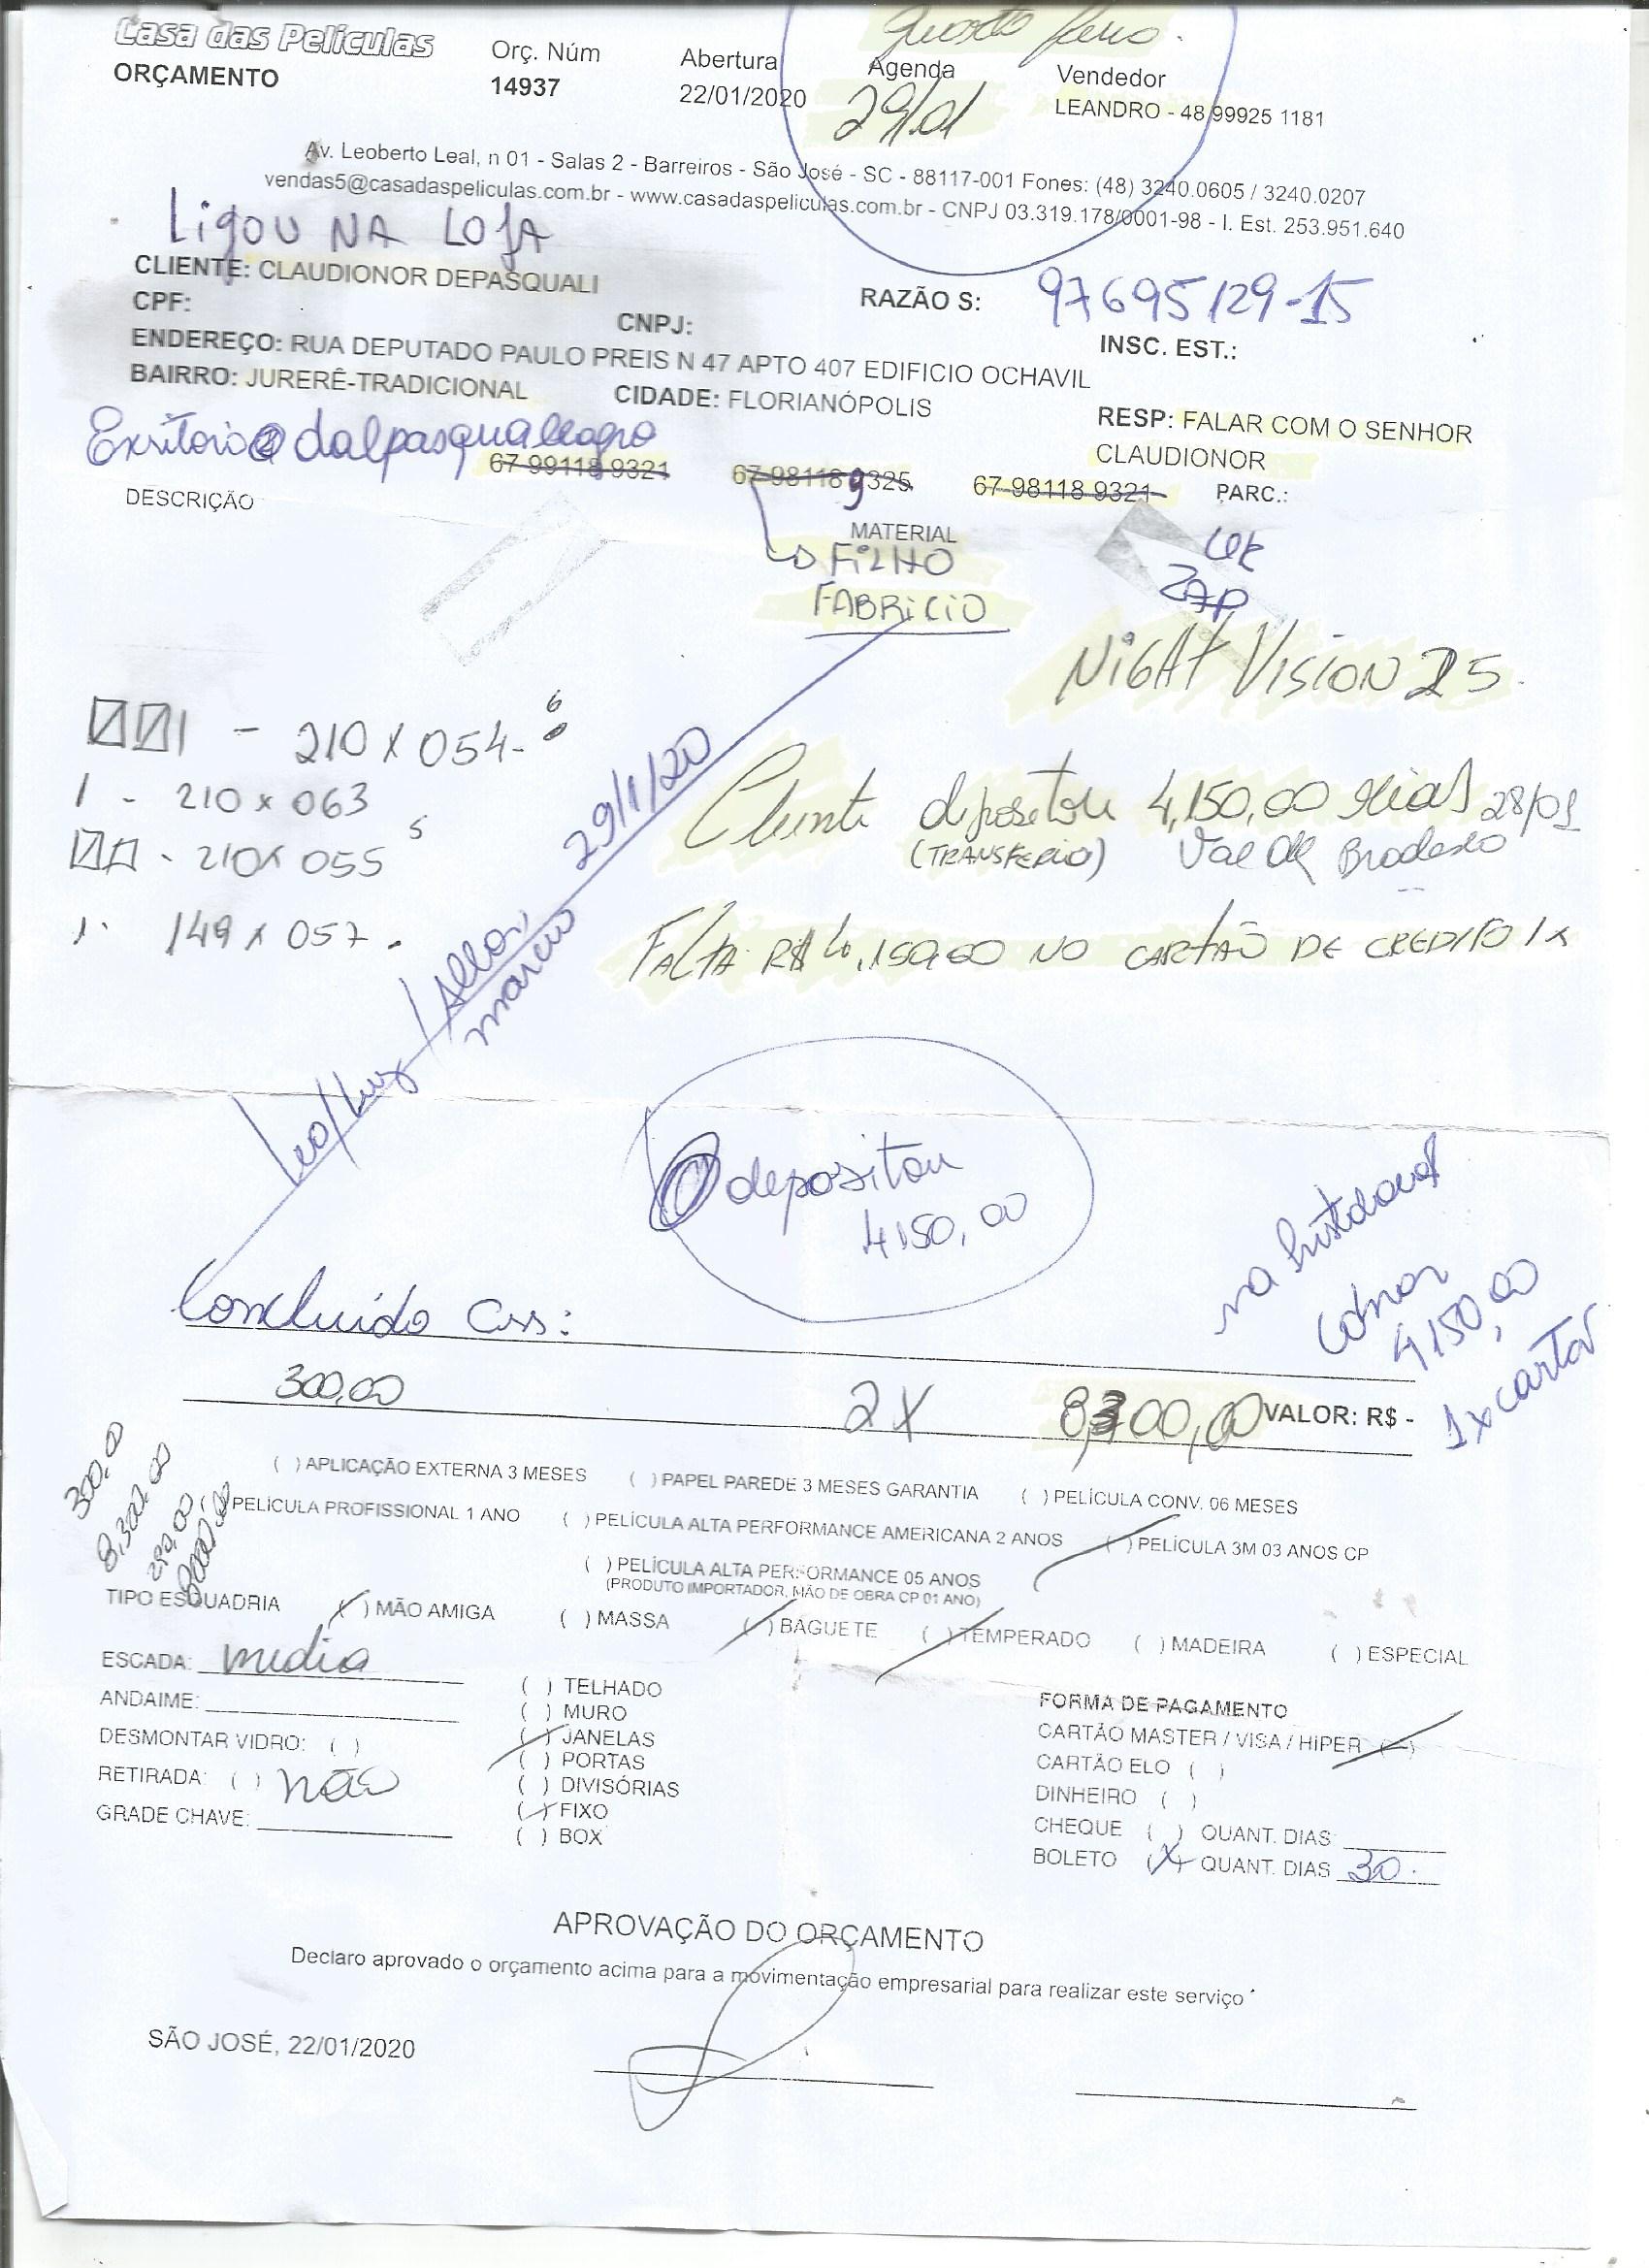 Casa das Películas
ORÇAMENTO
Orç. Núm
14937
Abertura
22/01/2020
Agenda
29/01
Vendedor
LEANDRO - 48 99925 1181
Av. Leoberto Leal, n 01 - Salas 2 - Barreiros - São José - SC - 88117-001 Fones: (48) 3240.0605 / 3240.0207
vendas5@casadaspeliculas.com.br - www.casadaspeliculas.com.br - CNPJ 03.319.178/0001-98 - I. Est. 253.951.640
LIGOU NA LOJA
CLIENTE: CLAUDIONOR DEPASQUALI
RAZÃO S: 97695129-15
CPF:
CNPJ:
INSC. EST.:
ENDEREÇO: RUA DEPUTADO PAULO PREIS N 47 APTO 407 EDIFICIO OCHAVIL
BAIRRO: JURERÊ-TRADICIONAL
CIDADE: FLORIANÓPOLIS
RESP: FALAR COM O SENHOR
CLAUDIONOR
67-99118 9321
67-98118 9325
67-98118 9321
PARC.:
DESCRIÇÃO
MATERIAL
FILHO
FABRICIO
ZAP
NIGHT VISION 25
- 210 X 054- 6
1 - 210 x 063
- 210X 055 5
1. 149 x 057.
29/1/20
Cliente depositou 4,150,00 reias 28/01
(TRANSFERIO)
FALTA R$ 4,150,00 NO CARTÃO DE CREDITO 1X
Marcio
depositou
4150,00
Cobrar
4150,00
1x cartão
Concluído
300,00 2X 8,300,00 VALOR: R$ -
300,00
8,300,00
( ) APLICAÇÃO EXTERNA 3 MESES ( ) PAPEL PAREDE 3 MESES GARANTIA ( ) PELÍCULA CONV. 06 MESES
( ) PELÍCULA PROFISSIONAL 1 ANO ( ) PELÍCULA ALTA PERFORMANCE AMERICANA 2 ANOS ( ) PELÍCULA 3M 03 ANOS CP
( ) PELÍCULA ALTA PERFORMANCE 05 ANOS
(PRODUTO IMPORTADOR, MÃO DE OBRA CP 01 ANO)
TIPO ESQUADRIA ( ) MÃO AMIGA ( ) MASSA ( ) BAGUETE ( ) TEMPERADO ( ) MADEIRA ( ) ESPECIAL
ESCADA: media
ANDAIME:
DESMONTAR VIDRO: ( )
RETIRADA: ( ) não
GRADE CHAVE:
( ) TELHADO
( ) MURO
( ) JANELAS
( ) PORTAS
( ) DIVISÓRIAS
( ) FIXO
( ) BOX
FORMA DE PAGAMENTO
CARTÃO MASTER / VISA / HIPER ( )
CARTÃO ELO ( )
DINHEIRO ( )
CHEQUE ( ) QUANT. DIAS:
BOLETO (X) QUANT. DIAS 30
APROVAÇÃO DO ORÇAMENTO
Declaro aprovado o orçamento acima para a movimentação empresarial para realizar este serviço
SÃO JOSÉ, 22/01/2020